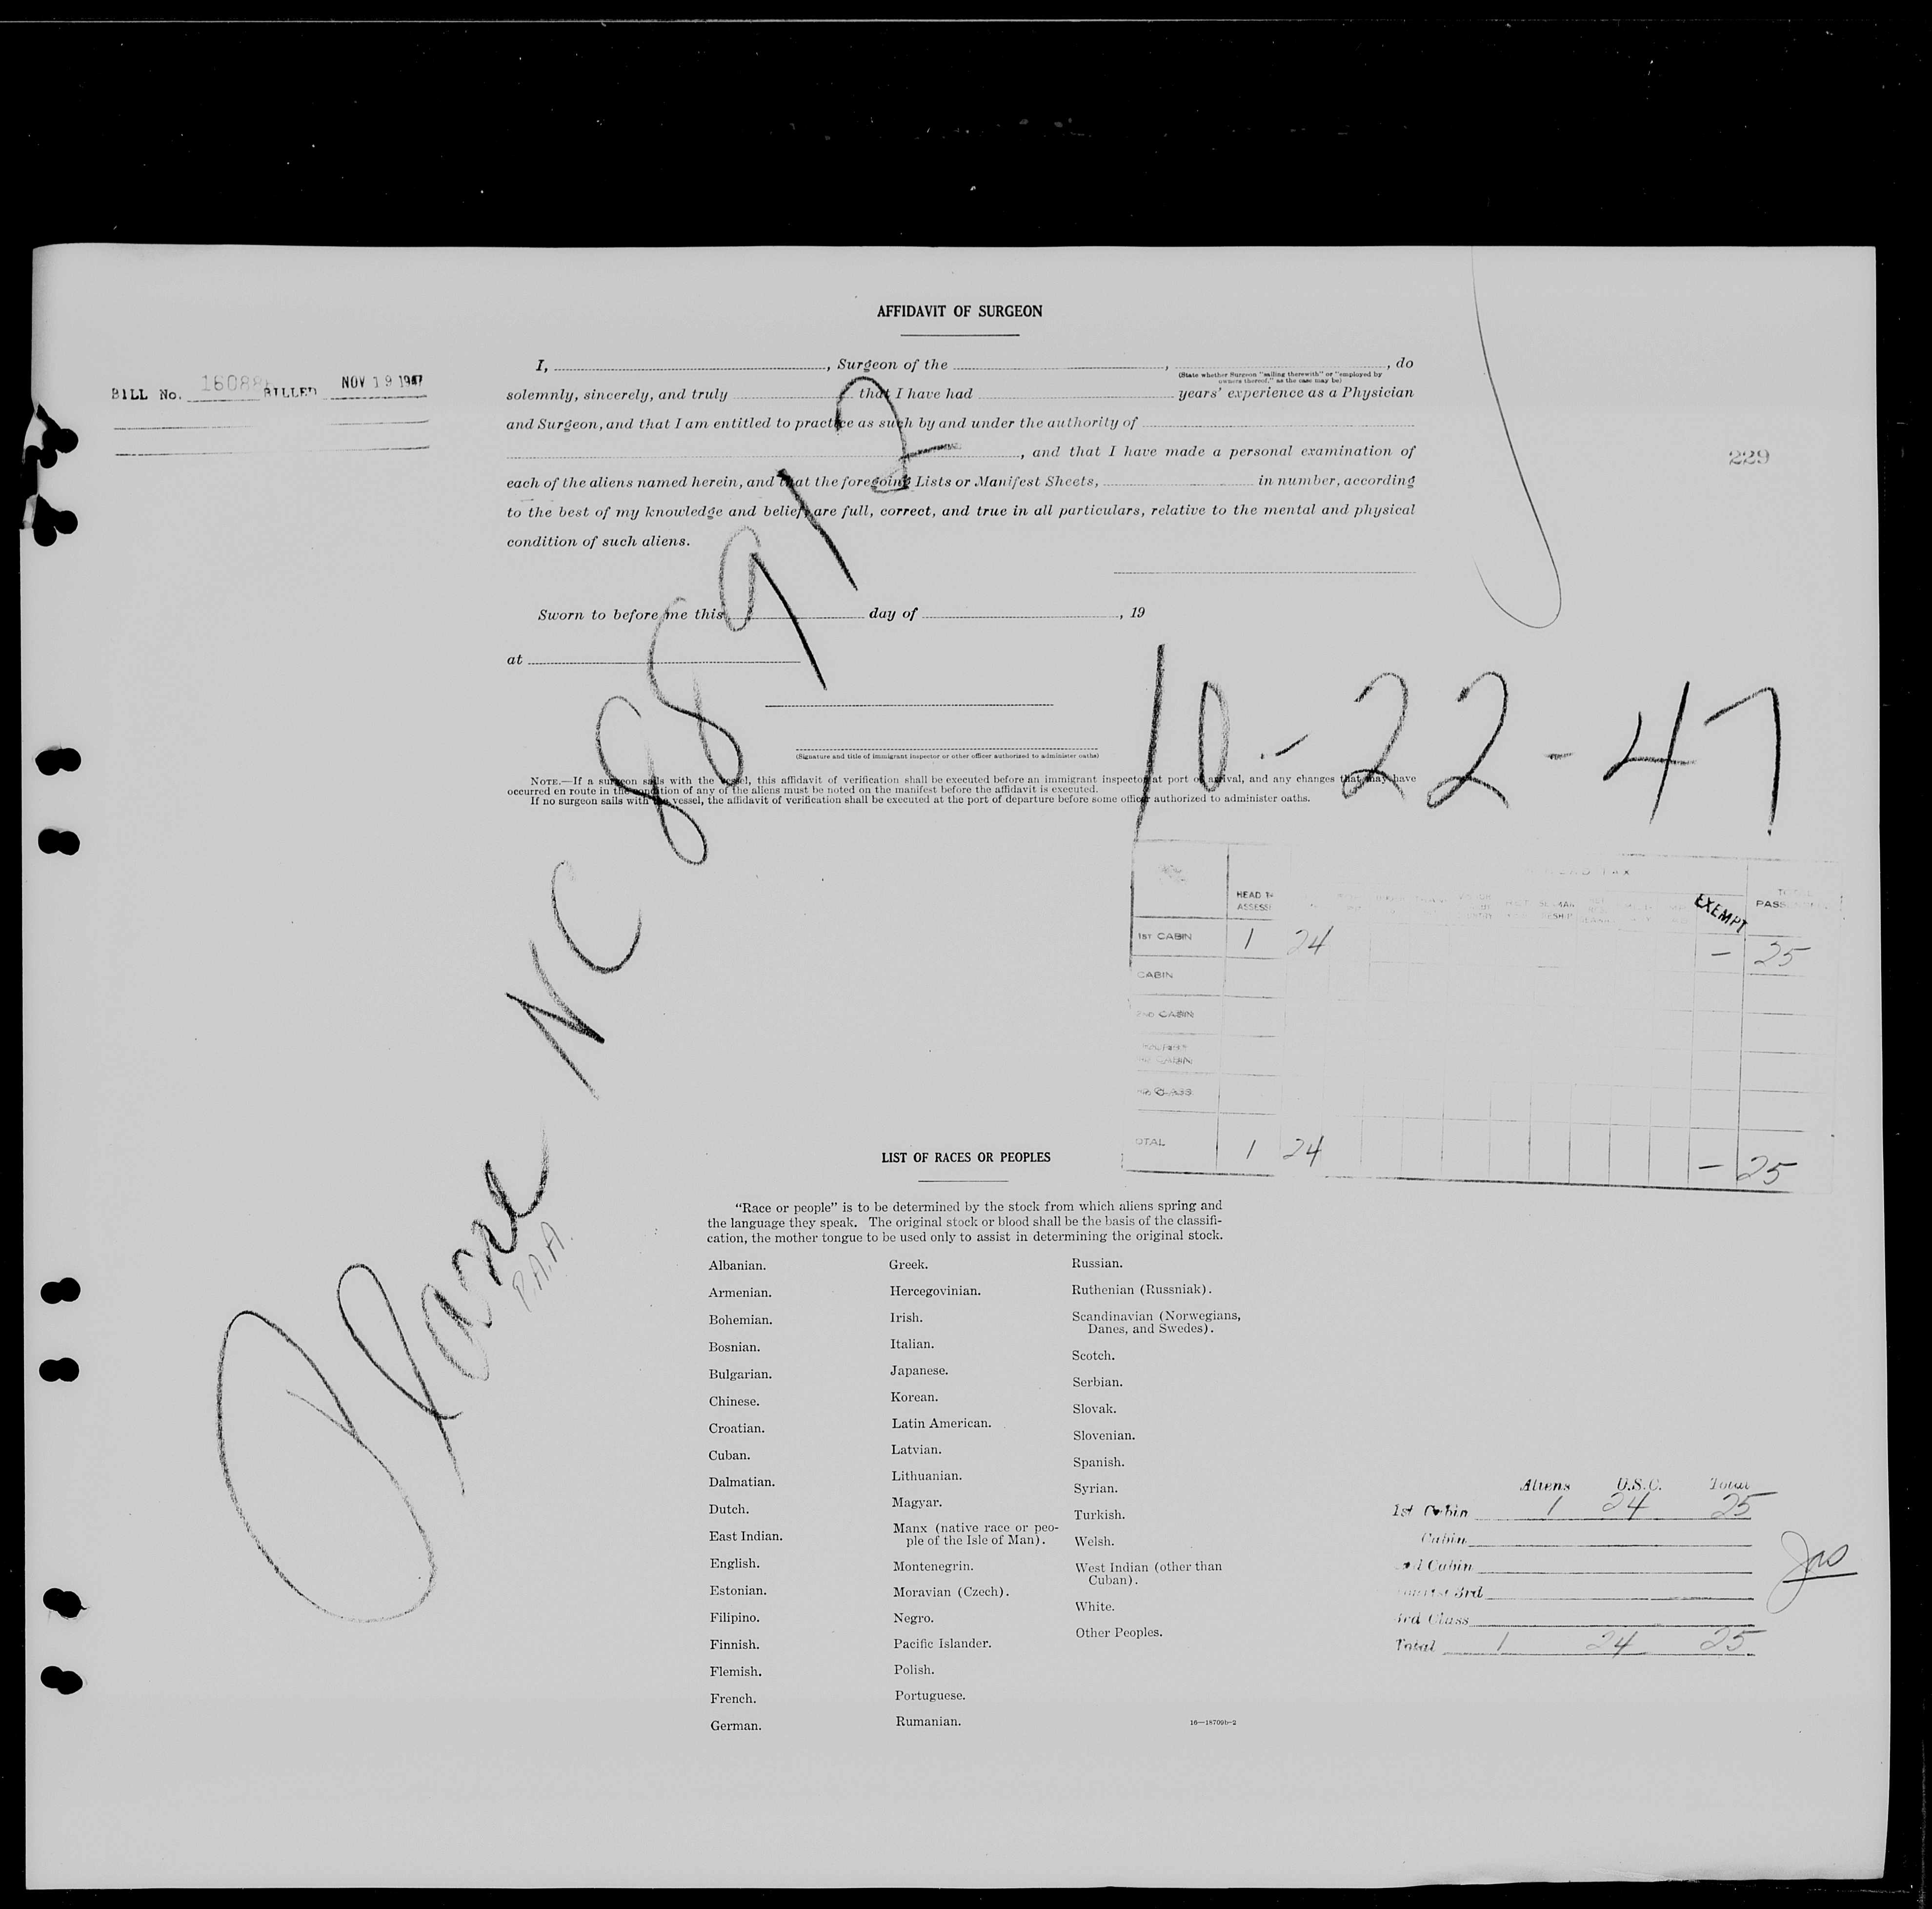 AFFIDAVIT OF SURGEON
I, , Surgeon of the , , do
(State whether Surgeon "sailing therewith" or "employed by
owners thereof," as the case may be)
BILL No. 16088 BILLED NOV 19 1947
solemnly, sincerely, and truly that I have had years' experience as a Physician
and Surgeon, and that I am entitled to practice as such by and under the authority of
, and that I have made a personal examination of
229
each of the aliens named herein, and that the foregoing Lists or Manifest Sheets, in number, according
to the best of my knowledge and belief, are full, correct, and true in all particulars, relative to the mental and physical
condition of such aliens.
Sworn to before me this day of , 19
at
(Signature and title of immigrant inspector or other officer authorized to administer oaths)
NOTE.—If a surgeon sails with the vessel, this affidavit of verification shall be executed before an immigrant inspector at port of arrival, and any changes that may have
occurred en route in the condition of any of the aliens must be noted on the manifest before the affidavit is executed.
If no surgeon sails with the vessel, the affidavit of verification shall be executed at the port of departure before some officer authorized to administer oaths.
Plane NC 88912
P.A.A.
10-22-47
HEAD TAX
HEAD T
ASSESS
EXEMPT
TOTAL
PASS
1ST CABIN 1 24 — 25
CABIN
2ND CABIN
TOTAL 1 24 — 25
LIST OF RACES OR PEOPLES
"Race or people" is to be determined by the stock from which aliens spring and
the language they speak. The original stock or blood shall be the basis of the classifi-
cation, the mother tongue to be used only to assist in determining the original stock.
Albanian.
Armenian.
Bohemian.
Bosnian.
Bulgarian.
Chinese.
Croatian.
Cuban.
Dalmatian.
Dutch.
East Indian.
English.
Estonian.
Filipino.
Finnish.
Flemish.
French.
German.
Greek.
Hercegovinian.
Irish.
Italian.
Japanese.
Korean.
Latin American.
Latvian.
Lithuanian.
Magyar.
Manx (native race or peo-
ple of the Isle of Man).
Montenegrin.
Moravian (Czech).
Negro.
Pacific Islander.
Polish.
Portuguese.
Rumanian.
Russian.
Ruthenian (Russniak).
Scandinavian (Norwegians,
Danes, and Swedes).
Scotch.
Serbian.
Slovak.
Slovenian.
Spanish.
Syrian.
Turkish.
Welsh.
West Indian (other than
Cuban).
White.
Other Peoples.
16—18709b-2
Aliens U.S.C. Total
1st Cabin 1 24 25
Cabin
2nd Cabin
Tourist 3rd
3rd Class
Total 1 24 25